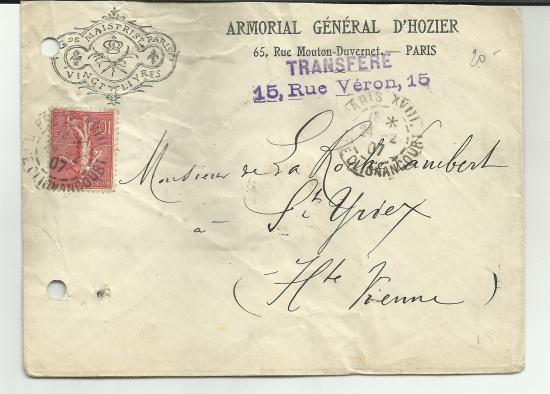 DE MAISTRISE PARIS
VINGT LIVRES
ARMORIAL GÉNÉRAL D'HOZIER
65, Rue Mouton-Duvernet. — PARIS
TRANSFÉRÉ
15, Rue Véron, 15
20.-
PARIS XVIII
18 *
24 - 2
07
R. CLIGNANCOURT
10
07
CLIGNANCOURT
Monsieur de La Roche Lambert
à St Yriex
(Hte Vienne)
15